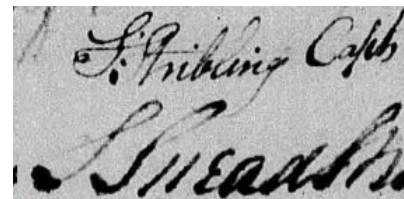 S: Tribling Capt
S Snead